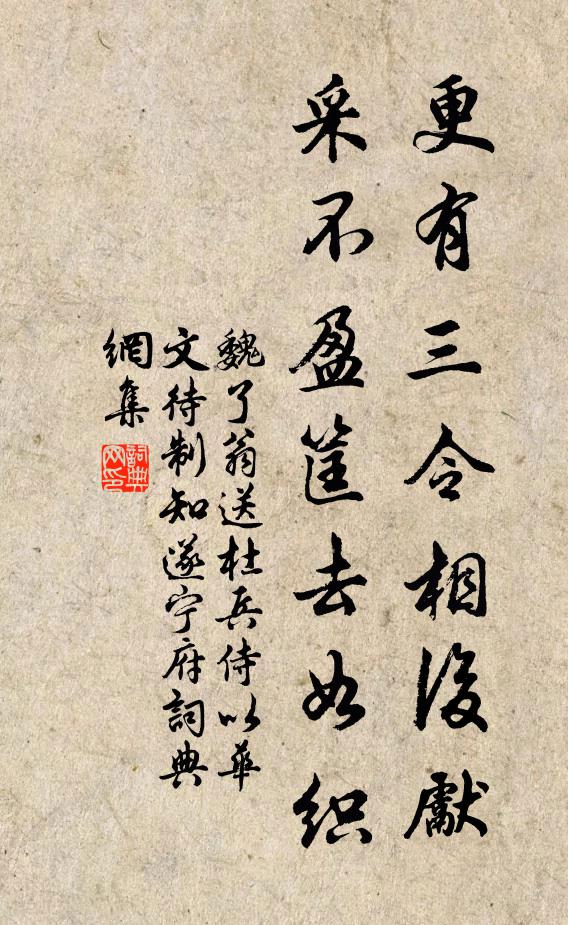 更有三令相後獻
采不盈筐去如織
魏了翁送杜兵侍以華
文待制知遂宁府詞典
網集
詞典
网印